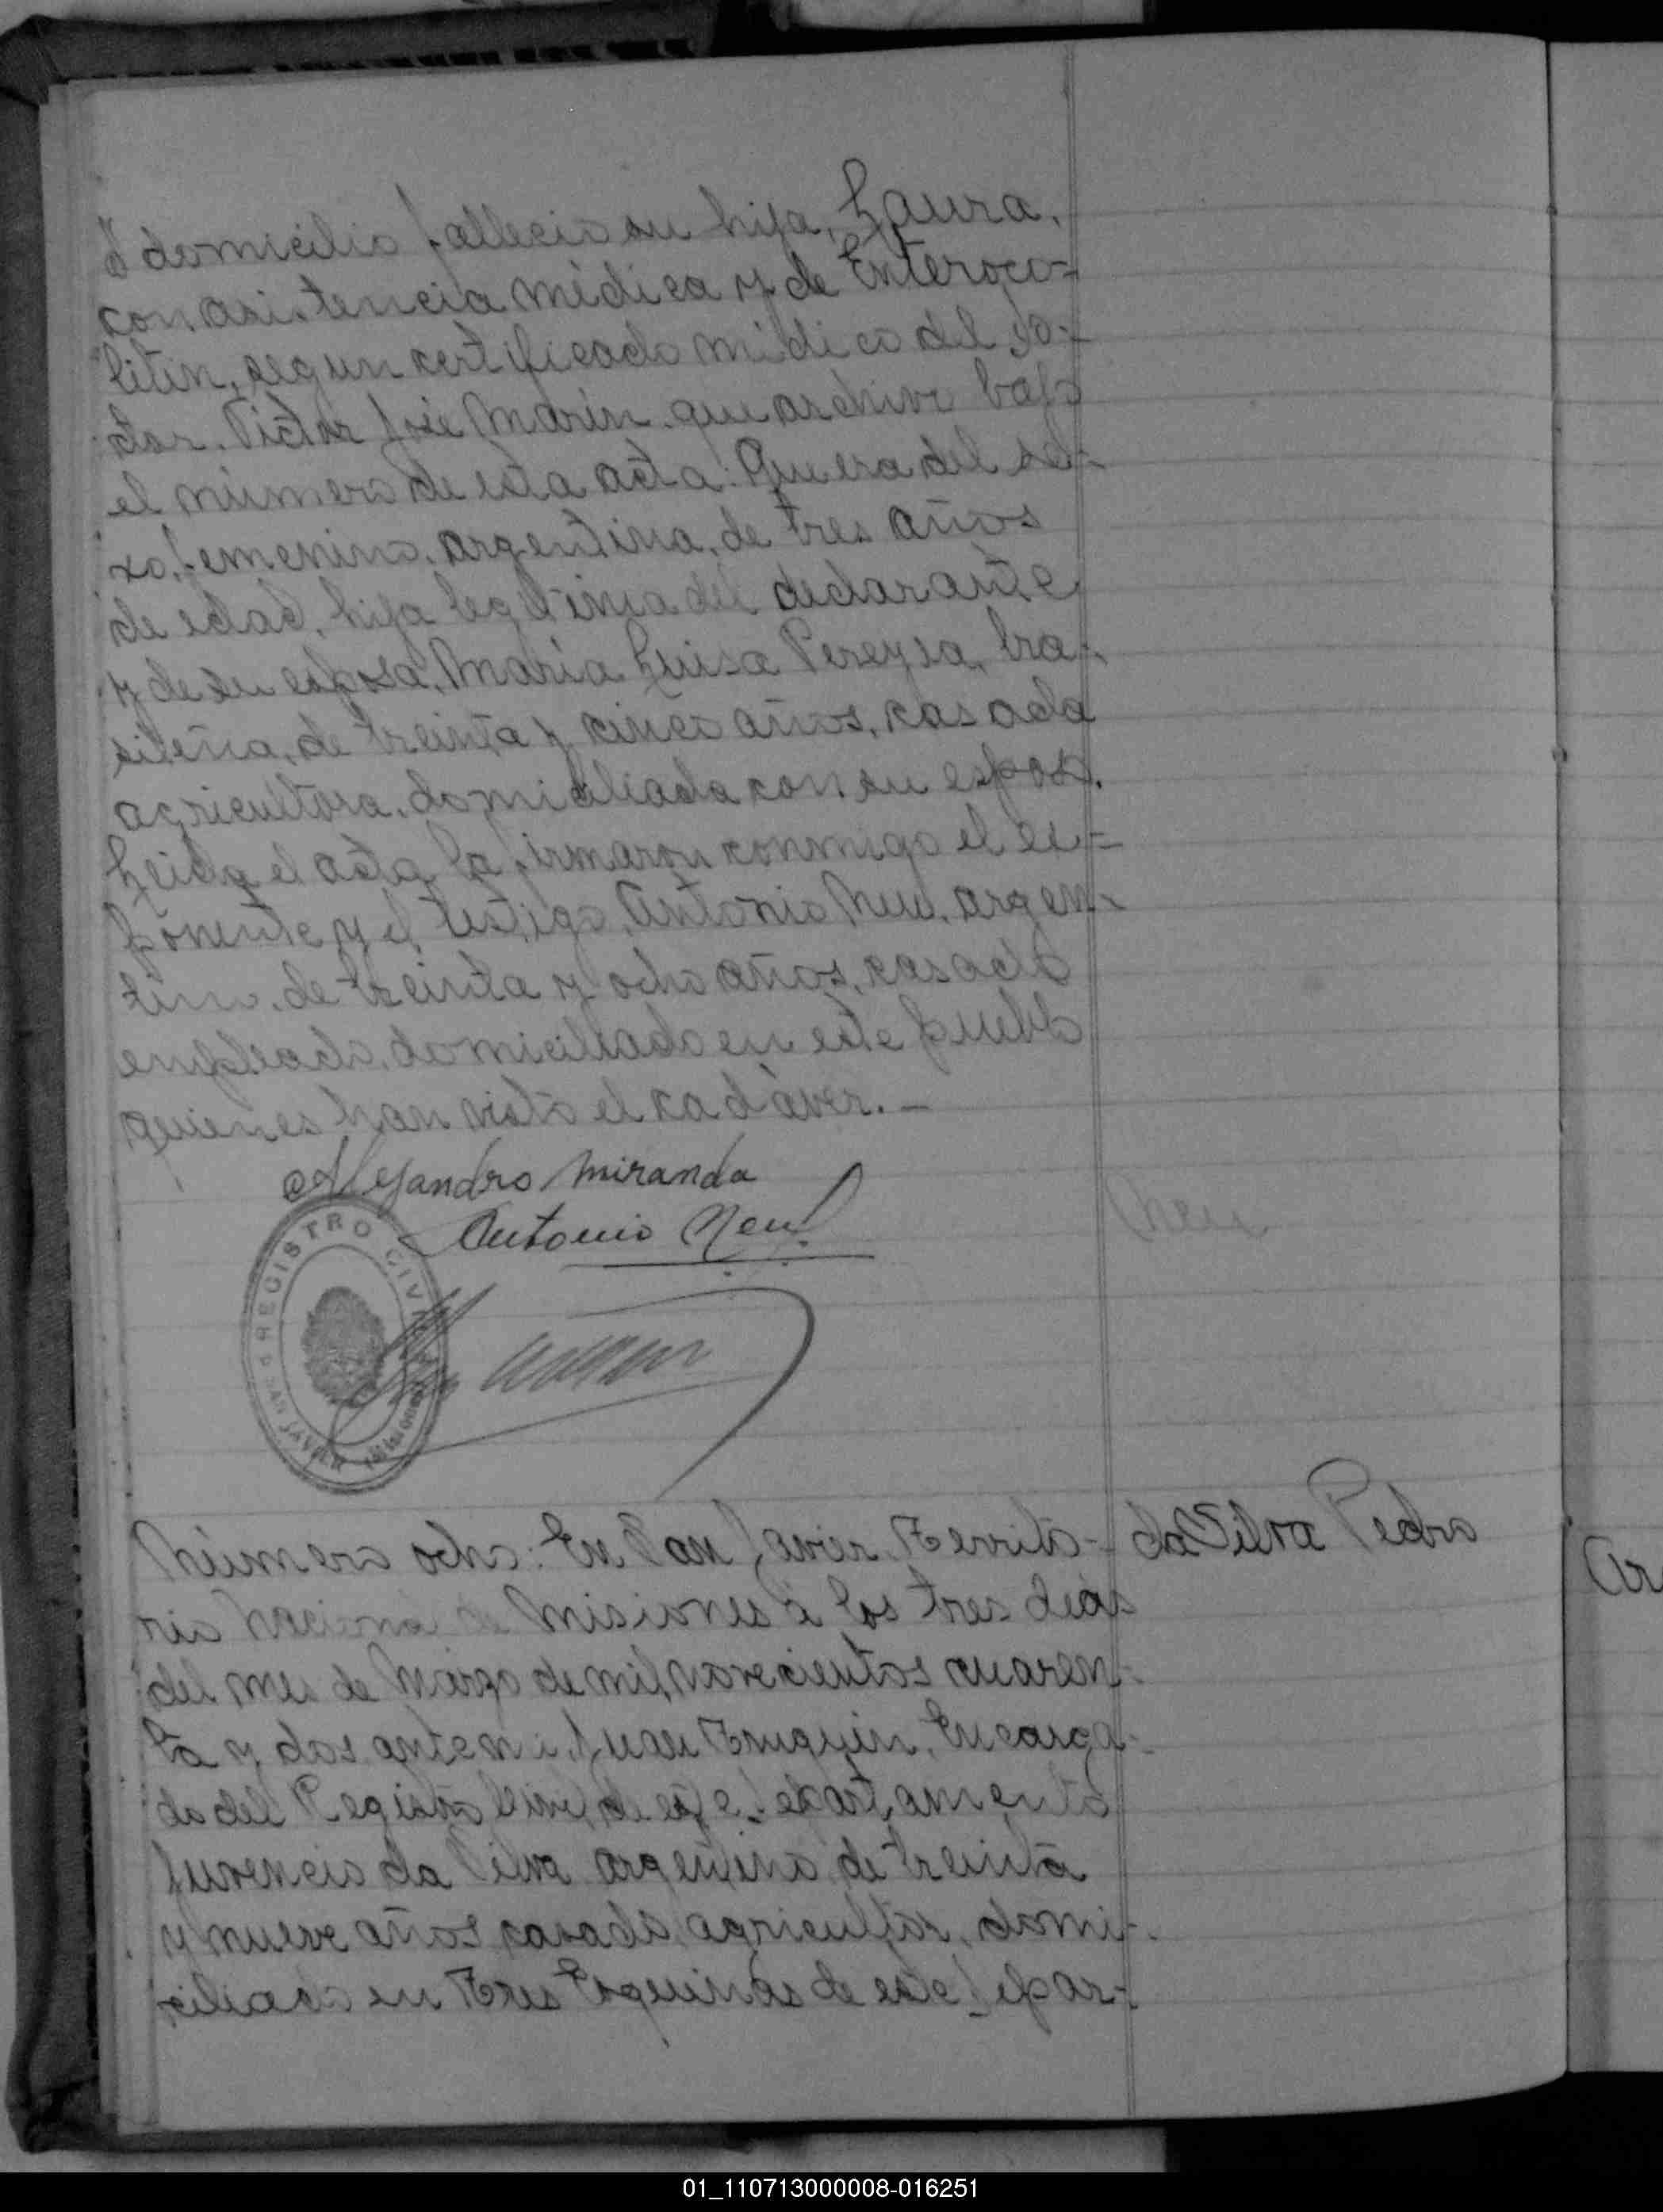 domicilio fallecio su hija, Laura,
con asistencia médica y de Enteroco=
litin, segun certificado médico del Do=
ctor. Victor José Marin. que archivo bajo
el número de esta acta: Que era del se-
xo, femenino, argentina, de tres años
de edad, hija legitima del declarante
y de su esposa, Maria Luisa Pereyra, bra-
sileña, de treinta y cinco años, casada
agricultora, domiciliada con su esposo.
Leida el acta la firmaron conmigo el ex=
ponente y el testigo, Antonio Neu, argen-
tino, de treinta y ocho años, casado
empleado, domiciliado en este pueblo
quienes han visto el cadáver. —
Alejandro Miranda
Antonio Neu
Neu
REGISTRO CIVIL
SAN JAVIER MISIONES
Número ocho: En San Javier, Territo-
da Silva Pedro
rio Nacional de Misiones á los tres dias
Ar
del mes de Marzo de mil novecientos cuaren-
ta y dos, ante mi, Juan Encarga-
do del Registro Civil de este Departamento
Juvencio da Silva argentino, de treinta
y nueve años, casado, agricultor, domi-
ciliado en Tres Esquinas de este Depar-
01_110713000008-016251